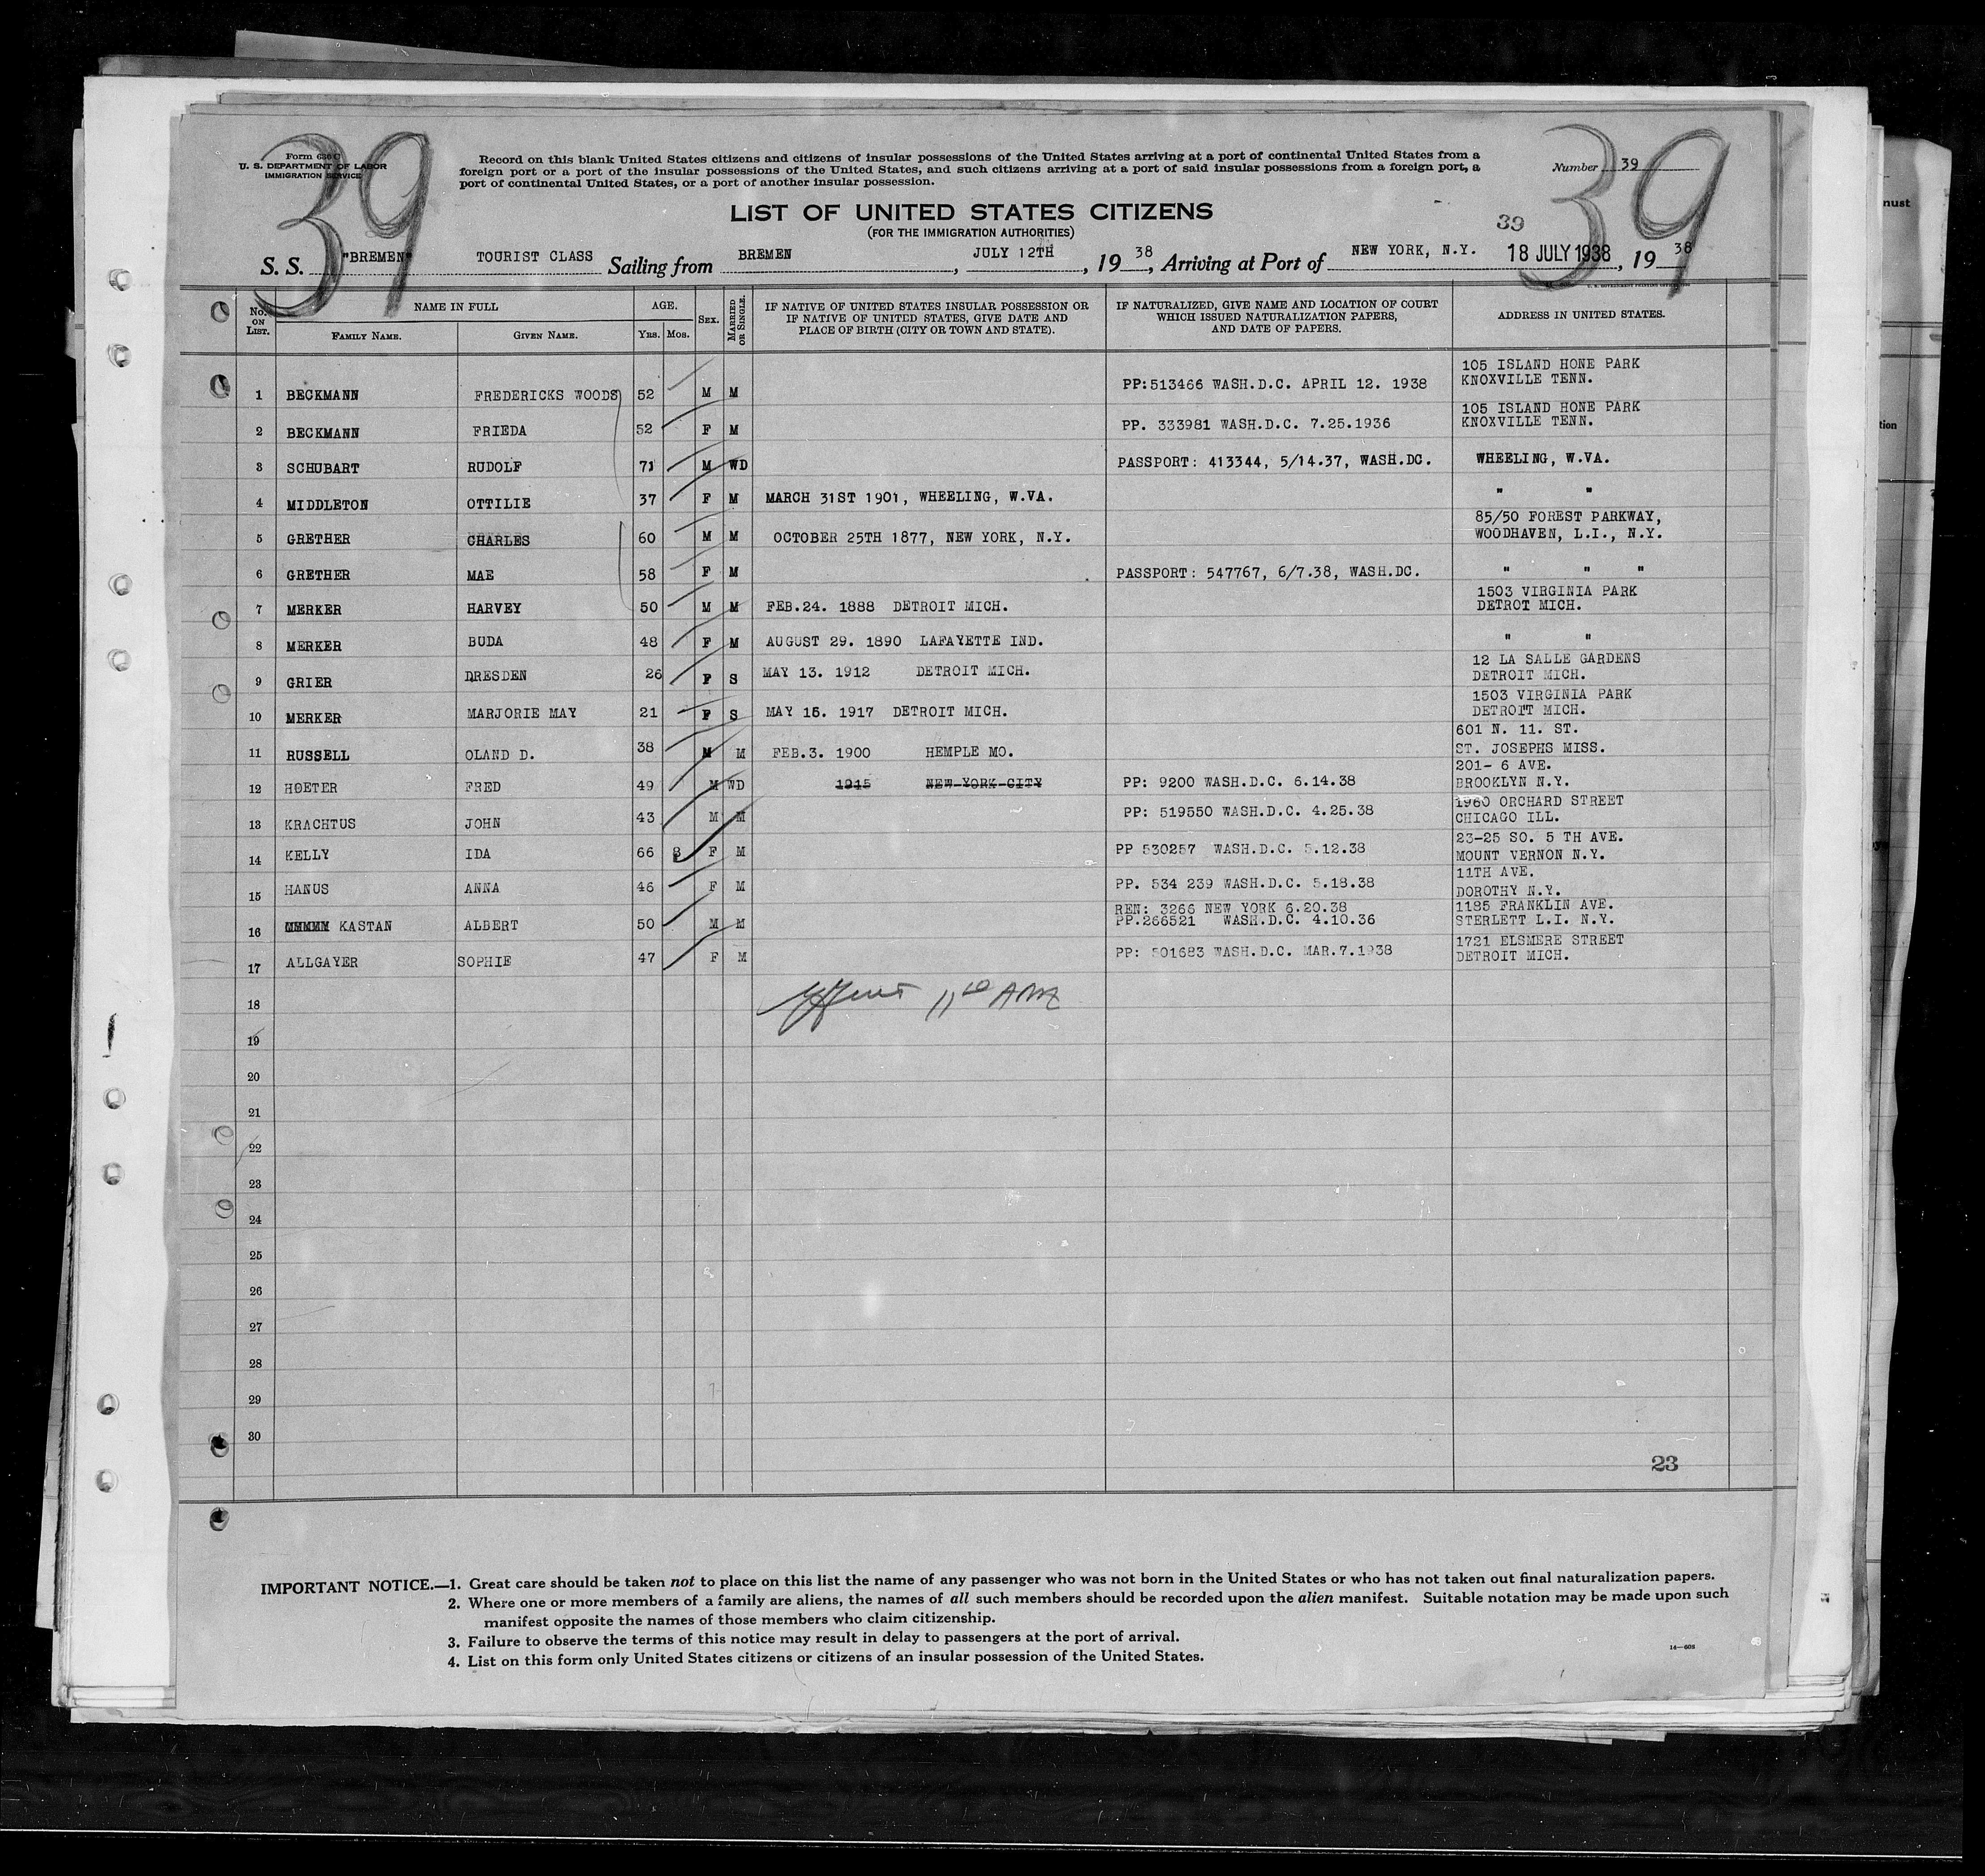 39
39
Form 630 C
U. S. DEPARTMENT OF LABOR
IMMIGRATION SERVICE
Record on this blank United States citizens and citizens of insular possessions of the United States arriving at a port of continental United States from a
foreign port or a port of the insular possessions of the United States, and such citizens arriving at a port of said insular possessions from a foreign port, a
port of continental United States, or a port of another insular possession.
Number 39
LIST OF UNITED STATES CITIZENS
(FOR THE IMMIGRATION AUTHORITIES)
39
S. S. "BREMEN" TOURIST CLASS Sailing from BREMEN, JULY 12TH, 19 38, Arriving at Port of NEW YORK, N.Y. 18 JULY 1938, 19 38
No. ON LIST. NAME IN FULL FAMILY NAME. GIVEN NAME. AGE. YRS. MOS. SEX. MARRIED OR SINGLE. IF NATIVE OF UNITED STATES INSULAR POSSESSION OR IF NATIVE OF UNITED STATES, GIVE DATE AND PLACE OF BIRTH (CITY OR TOWN AND STATE). IF NATURALIZED, GIVE NAME AND LOCATION OF COURT WHICH ISSUED NATURALIZATION PAPERS, AND DATE OF PAPERS. ADDRESS IN UNITED STATES.
1 BECKMANN FREDERICKS WOODS 52 M M PP:513466 WASH.D.C. APRIL 12. 1938 105 ISLAND HONE PARK KNOXVILLE TENN.
2 BECKMANN FRIEDA 52 F M PP. 333981 WASH.D.C. 7.25.1936 105 ISLAND HONE PARK KNOXVILLE TENN.
3 SCHUBART RUDOLF 71 M WD PASSPORT: 413344, 5/14.37, WASH.DC. WHEELING, W.VA.
4 MIDDLETON OTTILIE 37 F M MARCH 31ST 1901, WHEELING, W.VA. " "
5 GRETHER CHARLES 60 M M OCTOBER 25TH 1877, NEW YORK, N.Y. 85/50 FOREST PARKWAY, WOODHAVEN, L.I., N.Y.
6 GRETHER MAE 58 F M PASSPORT: 547767, 6/7.38, WASH.DC. " " "
7 MERKER HARVEY 50 M M FEB.24. 1888 DETROIT MICH. 1503 VIRGINIA PARK DETROT MICH.
8 MERKER BUDA 48 F M AUGUST 29. 1890 LAFAYETTE IND. " "
9 GRIER DRESDEN 26 F S MAY 13. 1912 DETROIT MICH. 12 LA SALLE GARDENS DETROIT MICH.
10 MERKER MARJORIE MAY 21 F S MAY 15. 1917 DETROIT MICH. 1503 VIRGINIA PARK DETROIT MICH.
11 RUSSELL OLAND D. 38 M M FEB.3. 1900 HEMPLE MO. 601 N. 11. ST. ST. JOSEPHS MISS.
12 HOETER FRED 49 M WD 1915 NEW YORK CITY PP: 9200 WASH.D.C. 6.14.38 201- 6 AVE. BROOKLYN N.Y.
13 KRACHTUS JOHN 43 M M PP: 519550 WASH.D.C. 4.25.38 1960 ORCHARD STREET CHICAGO ILL.
14 KELLY IDA 66 8 F M PP 530257 WASH.D.C. 5.12.38 23-25 SO. 5 TH AVE. MOUNT VERNON N.Y.
15 HANUS ANNA 46 F M PP. 534 239 WASH.D.C. 5.18.38 11TH AVE. DOROTHY N.Y.
16 KASTAN ALBERT 50 M M REN: 3266 NEW YORK 6.20.38 PP.266521 WASH.D.C. 4.10.36 1185 FRANKLIN AVE. STERLETT L.I. N.Y.
17 ALLGAYER SOPHIE 47 F M PP: 501683 WASH.D.C. MAR.7.1938 1721 ELSMERE STREET DETROIT MICH.
18 11 10 AM
19
20
21
22
23
24
25
26
27
28
29
30
23
IMPORTANT NOTICE.—1. Great care should be taken not to place on this list the name of any passenger who was not born in the United States or who has not taken out final naturalization papers.
2. Where one or more members of a family are aliens, the names of all such members should be recorded upon the alien manifest. Suitable notation may be made upon such
manifest opposite the names of those members who claim citizenship.
3. Failure to observe the terms of this notice may result in delay to passengers at the port of arrival.
4. List on this form only United States citizens or citizens of an insular possession of the United States.
14—608